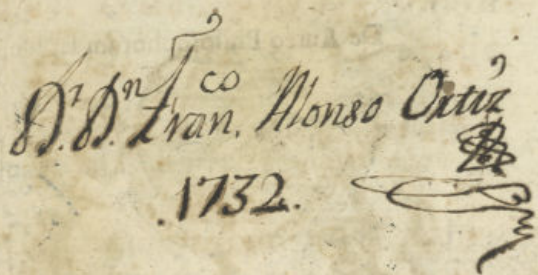 Dr. Dn. Franco. Alonso Ortiz
.1732.